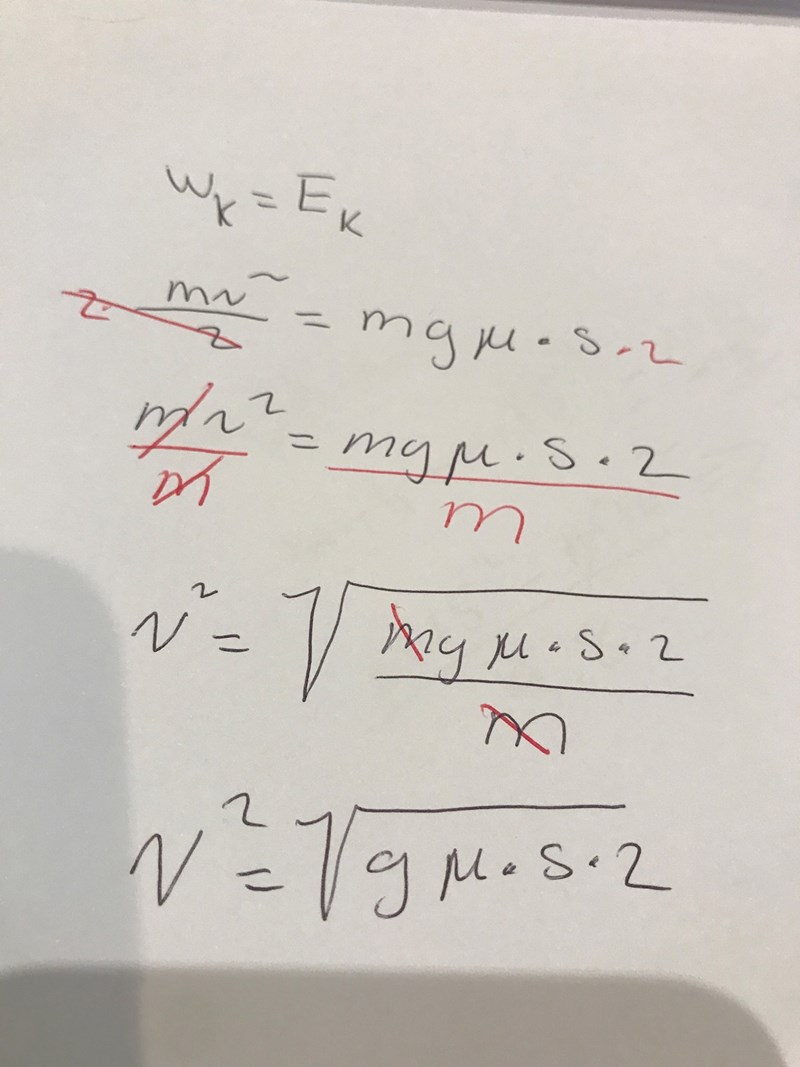 W_K = E_K
2 · mv²/2 = mgμ · s · 2
mv²/m = mgμ · s · 2/m
v² = √(mgμ · s · 2/m)
v² = √(gμ · s · 2)